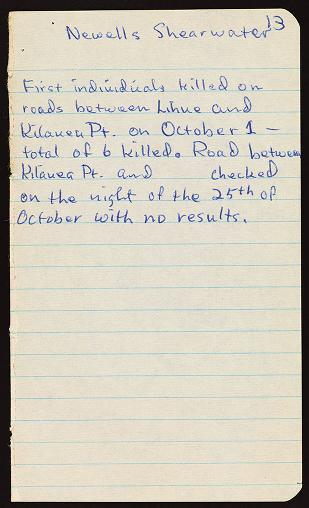 13
Newells Shearwater
First individuals killed on
roads between Lihue and
Kilauea Pt. on October 1 –
total of 6 killed. Road between
Kilauea Pt. and checked
on the night of the 25th of
October with no results.